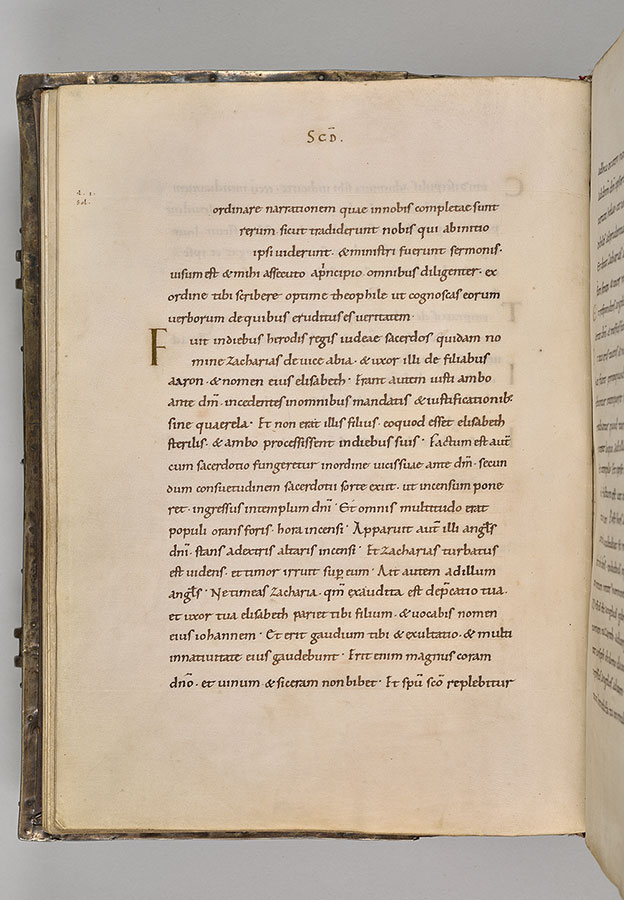 SCD̄.
ordinare narrationem quae innobis completae sunt
rerum. sicut tradiderunt nobis qui abinitio
ipsi uiderunt. & ministri fuerunt sermonis.
uisum est & mihi assecuto apͥncipio omnibus diligenter. ex
ordine tibi scribere optime theophile ut cognoscas eorum
uerborum de quibus eruditus es ueritatem
Fuit indiebus herodis regis iudeae sacerdos quidam no
mine zacharias de uice abia. & uxor illi de filiabus
aaron. & nomen eius elisabeth. Erant autem iusti ambo
ante dm̄. incedentes inomnibus mandatis & iustificationib;
sine quaerela. Et non erat illis filius. eoquod esset elisabeth
sterilis. & ambo processissent indiebus suis. Factum est aut̄
cum sacerdotio fungeretur inordine uicissuae ante dm̄. secun
dum consuetudinem sacerdotii sorte exiit. ut incensum pone
ret. ingressus intemplum dnī. Et omnis multitudo erat
populi orans foris. hora incensi. Apparuit aut̄ illi angl̄s
dnī. stans adextris altaris incensi. Et zacharias turbatus
est uidens. et timor irruit sup̱ eum. Ait autem adillum
angl̄s. Ne timeas zacharia. qm̄ exaudita est dep̄catio tua.
et uxor tua elisabeth pariet tibi filium. & uocabis nomen
eius iohannem. Et erit gaudium tibi & exultatio. & multi
innatiuitate eius gaudebunt. Erit enim magnus coram
dnō. et uinum & siceram non bibet. Et spū scō replebitur